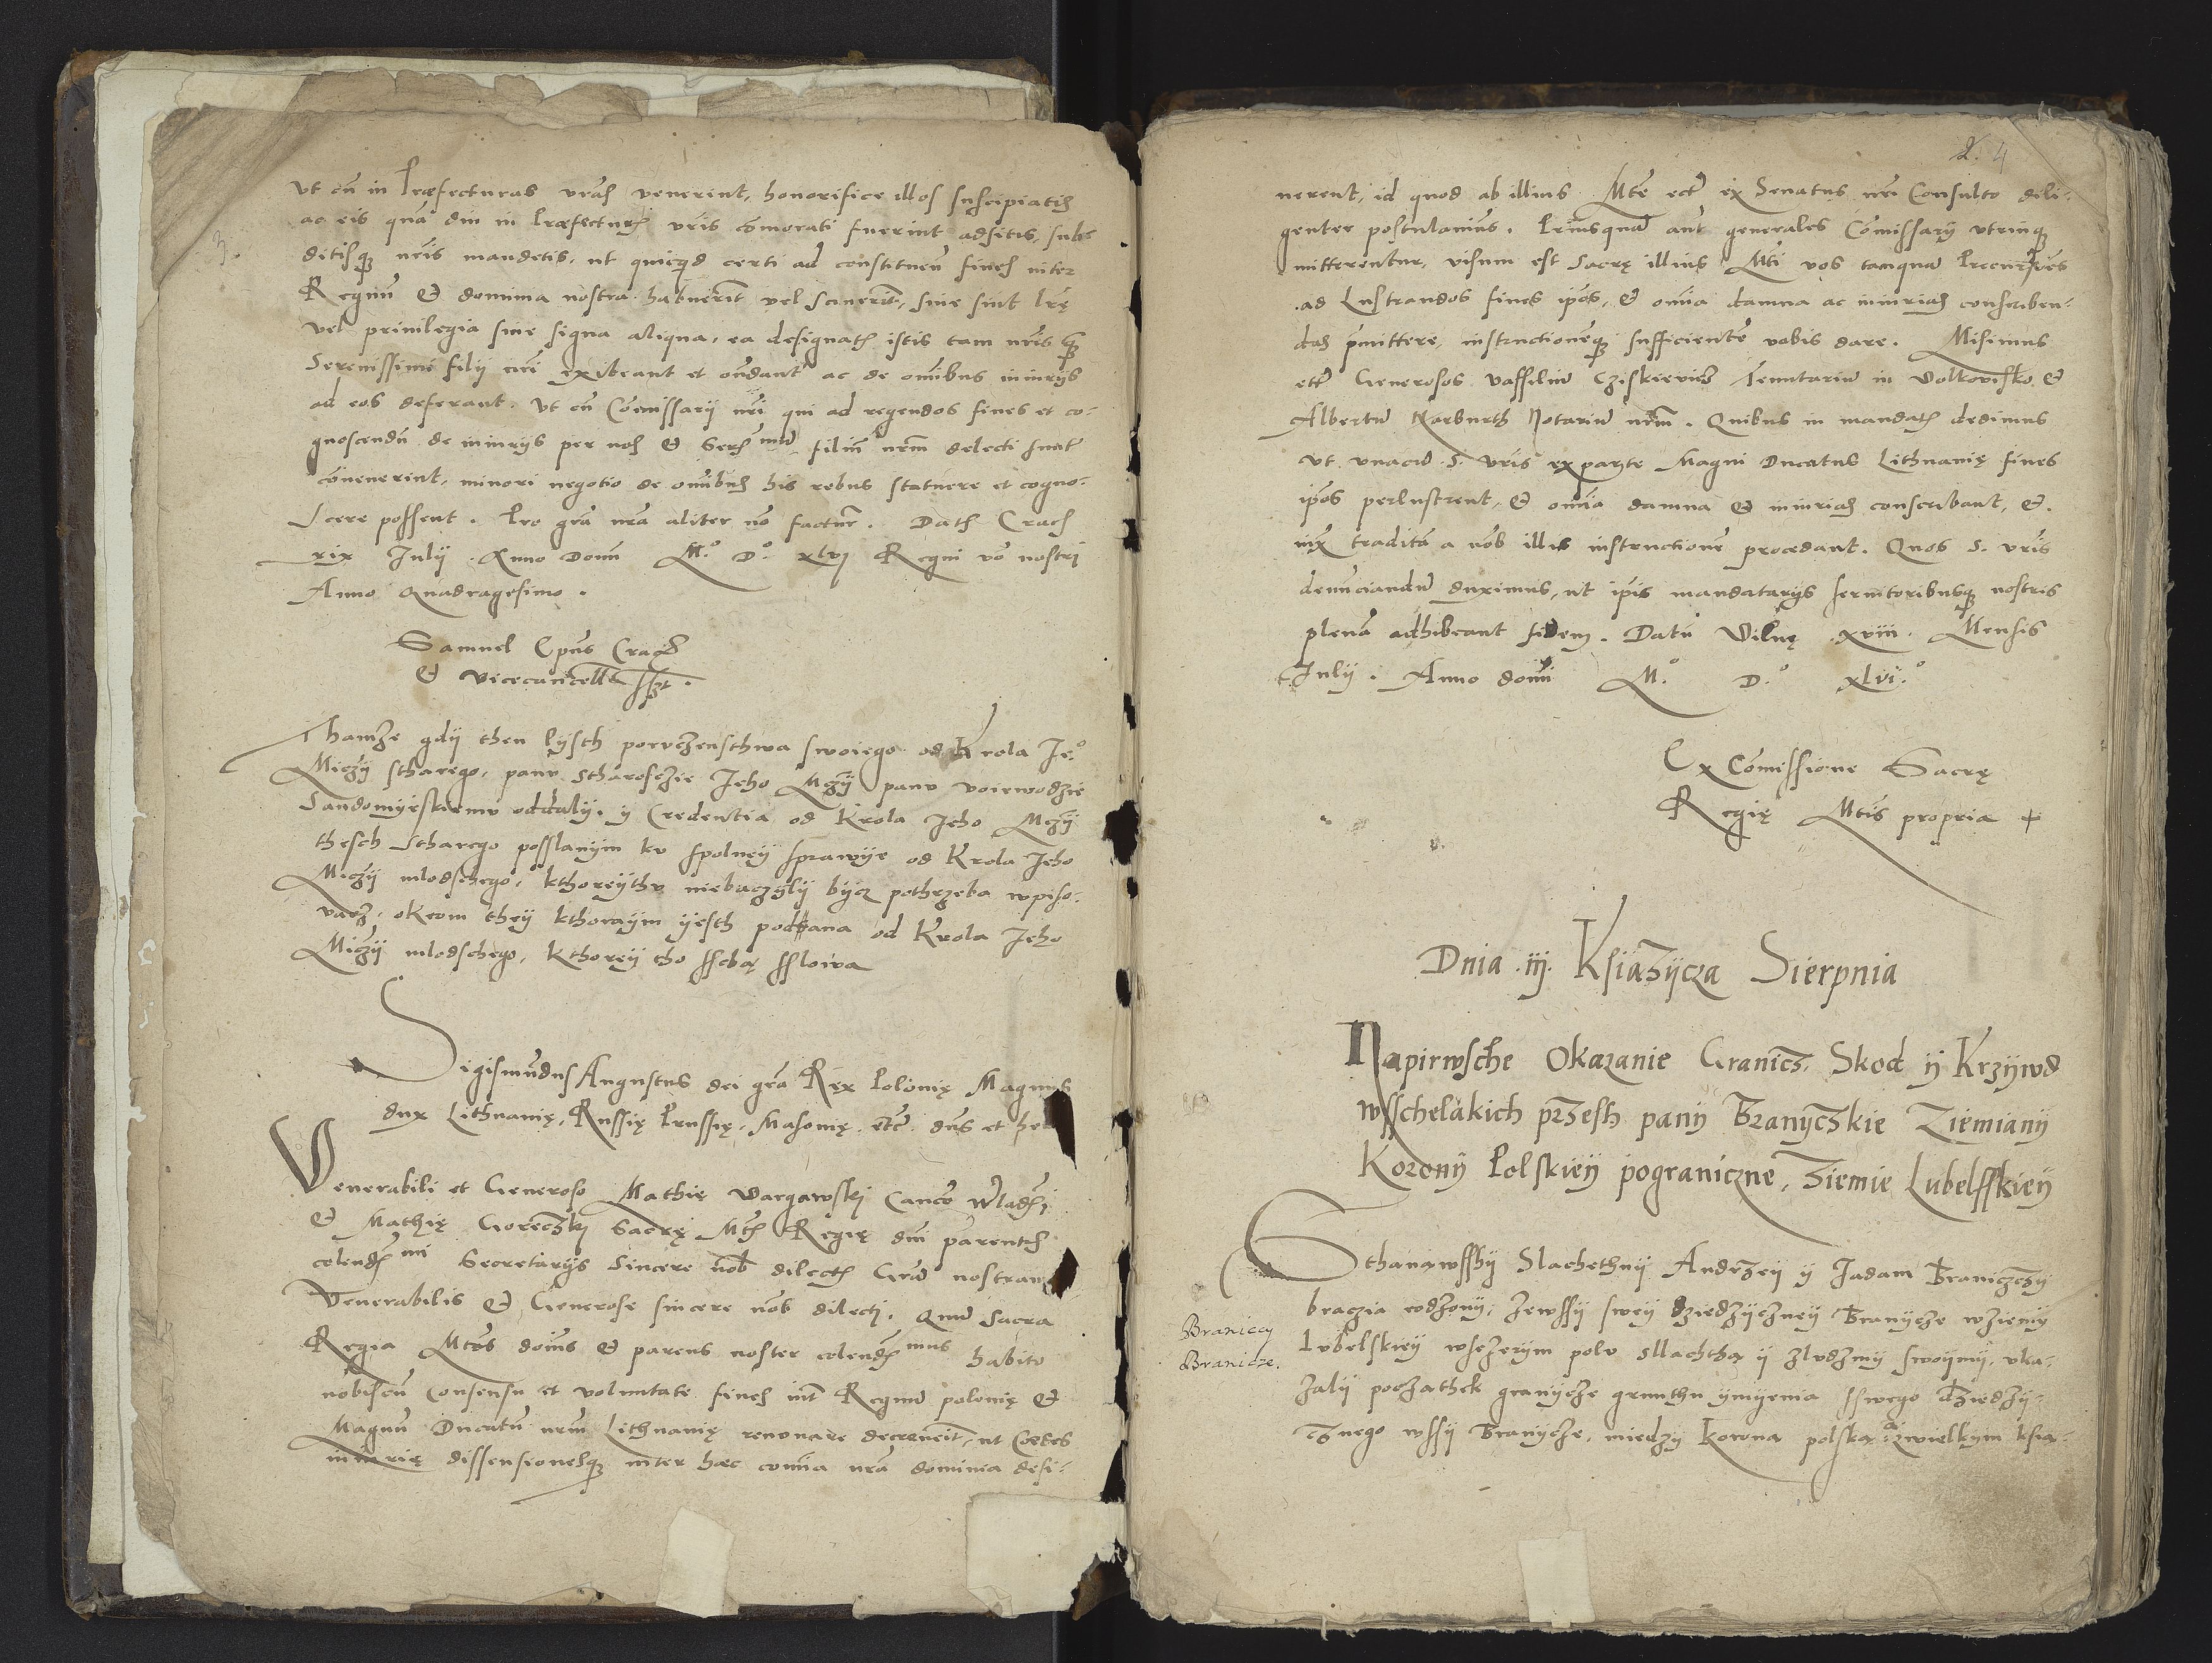 Vt cū in Præfecturas vrās venerint, honorifice illos suscipiatis
ac eis quā diu in Præfecturis vris cōmorati fuerint adsitis, sub-
ditisq3 nris mandetis, ut quicquid certi ad constituen fines inter
Regnū & dominia nostra habuerīt vel sciuerīt, siue sint lrę
vel priuilegia siue signa aliqua, ea designatis istis tam nris q3
Serenissimi filij nri exibeant et ondant ac de omībus iniurijs
ad eos deferant. Vt cū Cōmissarij nri qui ad regendos fines et co-
gnoscendū de iniurijs per nos & Seren mū filiū nrm delecti sunt
cōuenerint, minori negotio de omībus his rebus statuere et cogno-
scere possent. Pro gra nra aliter nō factur. Dat Crac
xix Julij Anno Domī M.° D.° xlvj Regni vō nostri
Anno Quadragesimo.
Samuel Epūs Crac
& Vicecancell sszt.
Thamże gdij then lijsth porvczensthwa swoiego od Krola Je°
Miczij stharego, panv stharosczie Jeho Mczij panv voiewodzie
Sandomijrskiemv oddalij, y Credentia od Krola Jeho Mczij
thesch stharego posslanijm kv spolneij sprawije od Krola Jeho
Miczij mlodschego, kthoreijthv niebaczijlij bijcz pothrzeba wpiso-
vacz, okrom theij kthoraijm ijesth poddana od Krola Jeho
Miczij mlodschego, kthoreij tho ssebą sslowa
Sigismūdus Augustus dei gra Rex Polonię Magnus
dux Lithuanię, Russię Prussię, Masouię etc dns et he
Venerabili et Generoso Mathię Vargawskj Canco Wladis
& Mathię Goreczskj Sacrę Mtis Regię dni parentis
colendis mi Secretarijs Sincere nob dilectis Grā nostram
Venerabilis & Generose sincere nob dilectj. Qm Sacra
Regia Mtas doms & parens noster colendis mus habito
nobiscū consensu et voluntate fines int Regnū polonię &
Magnū Ducatū nrm Lithuanię renouare decreueit, ut Cædes
iniurię dissensionesq3 inter hæc cōmūia nra dominia desi-
2. 4
nerent, id quod ab illius Mte etc ex Senatus nri Consulto dili-
genter postulauims. Priusquā aut generales Cōmissarij vtrinq3
mitterentur, visum est Sacrę illius Mti vos tanquā Precursores
ad Lustrandos fines ipos, & omīa damna ac iniurias conscriben-
das pmittere, instructionēq3 sufficientē vobis dare. Misimus
etc Generosos vassiliū Cziskievicz Tenutariū in Volkovisko &
Albertū Narbuth Notariū nrm. Quibus in mandatis dedimus
vt vnacū S. Vris ex parte Magni Ducatus Lithuanię fines
ipos perlustrent, & omīa damna & iniurias conscribant, &
iux traditā a nob illis instructionē procedant. Quos S. vris
denūciandū duximus, ut ipis mandatarijs seruitoribusq3 nostris
plenā adhibeant fidem. Datū Vilnę xviii Mensis
Julij. Anno domi M.° D.° xlvi.°
Ex Cōmissione Sacrę
Regię Mtis propria +
Dnia .iij. Książijcza Sierpnia
Napirwsche Okazanie Granicz. Skod ij Krzijwd
wsschelakich przesh panij Branijczskie Ziemianij
Koronij Polskieij pograniczne, Ziemie Lubelsskieij
Sthanąwsshij Slachethnij Andrzeij ij Jadam Braniczczij
braczia rodzonij, zewssij sweij dziedzijczneij Branijcze wziemij
Lvbelskieij wsczerijm polv sllachthą ij zlvdzmij swoijmij, vka-
zalij poczathek granijcze grunthu ijmijenia sswego dziedzij-
cznego wssij Branijcze, miedzij korona polską azwielkijm ksią-
Braniccy
Branicze.